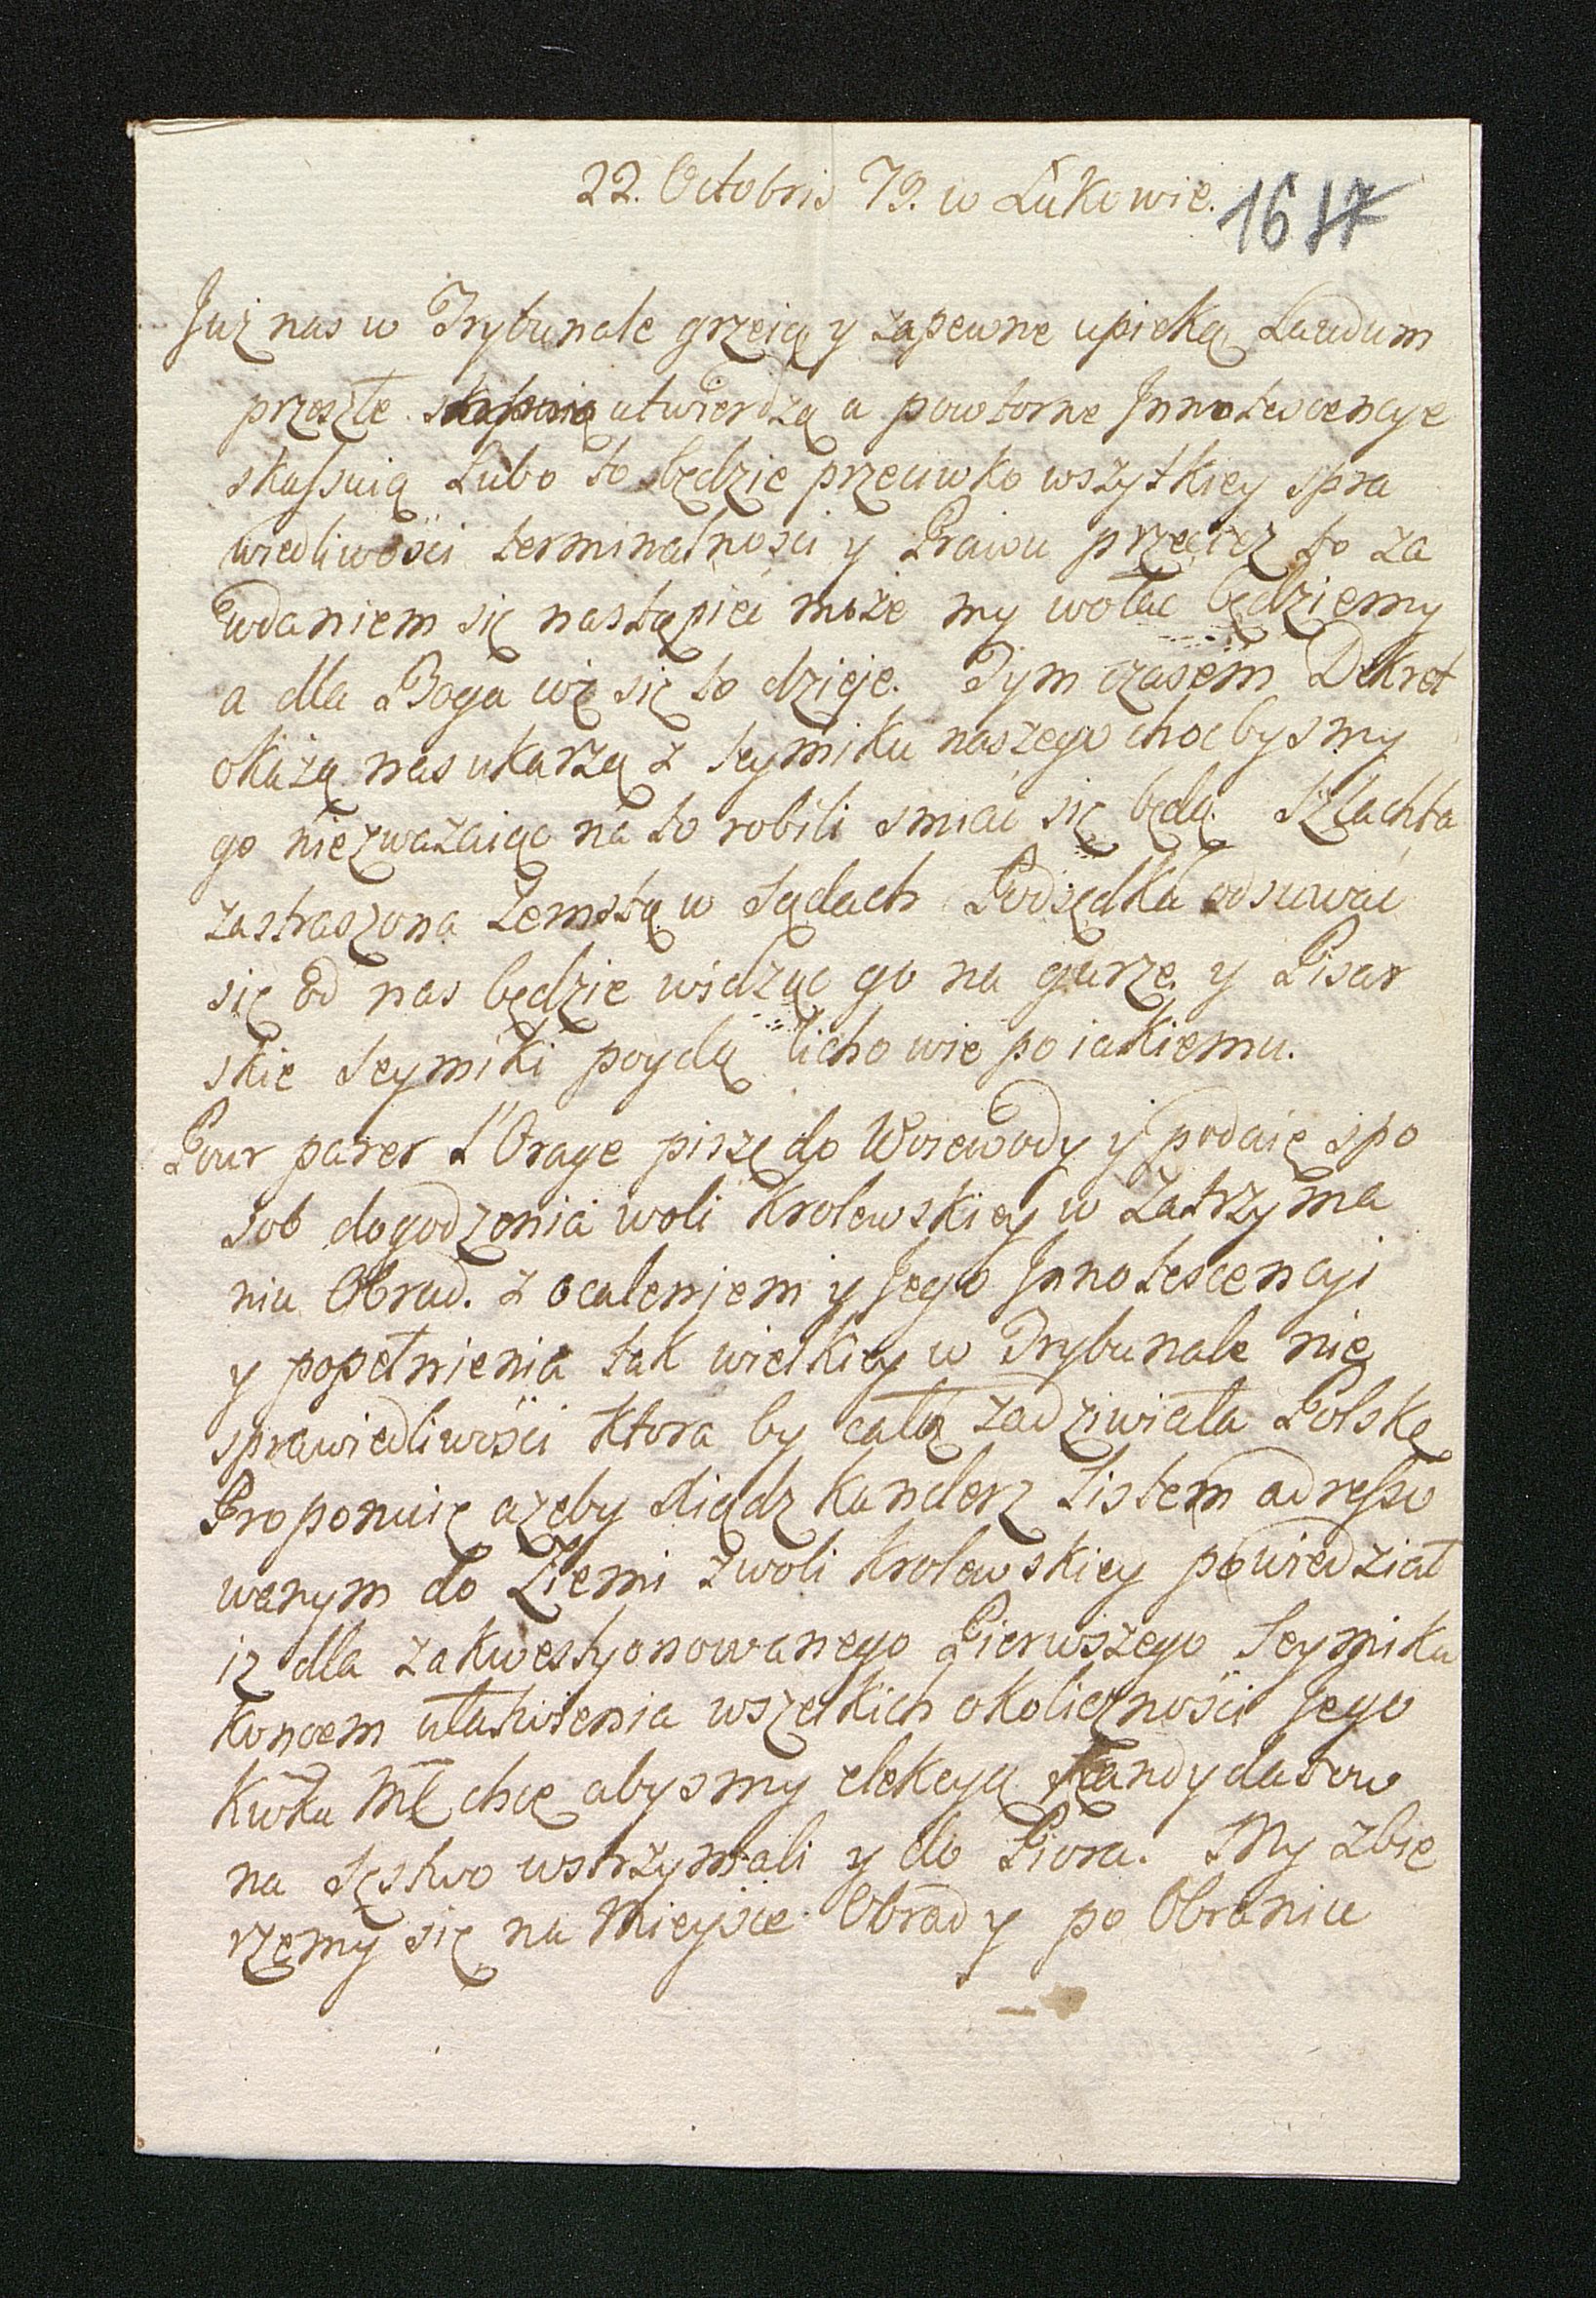 22. Octobris 79. w Łukowie.
16 17
Juz nas w Trybunale grzeią y zapewne upieką Laudum
przeszłe utwierdzą a powtorne Innotescencye
skassuią Lubo to będzie przeciwko wszytkiey spra
wiedliwości terminalności y Prawu przecież to za
wdaniem się nastąpić może my wołać będziemy
a dla Boga co się to dzieje. Tym czasem Dekret
okażą nas ukarzą z seymiku naszego choc bysmy
go niezważaiąc na to robili smiać się będą. Szlachta
zastraszona Zemstą w Sądach Podsędka odsuwać
się od nas będzie widząc go na gurze y Pisar
skie Seymiki poydą licho wie po iakiemu.
Pour parer L'Orage piszę do Woiewody y podaię spo
sob dogodzenia woli Krolewskiey w zatrzyma
niu Obrad. z ocaleniem y Jego Innotescencyi
y popełnienia tak wielkiey w Trybunale nie
sprawiedliwości ktora by całą zadziwiała Polskę
Proponuię azeby Xiądz Kanclerz Listem adresso
wanym do Ziemi z woli Krolewskiey powiedział
iz dla zakwestyonowanego Pierwszego Seymiku
koncem ułatwienia wszelkich okoliczności Jego
Krwka Mć chce abysmy elekcyą Kandydatow
na Sęstwo wstrzymali y do Piora. My zbie
rzemy się na Mieysce Obrady po Obraniu